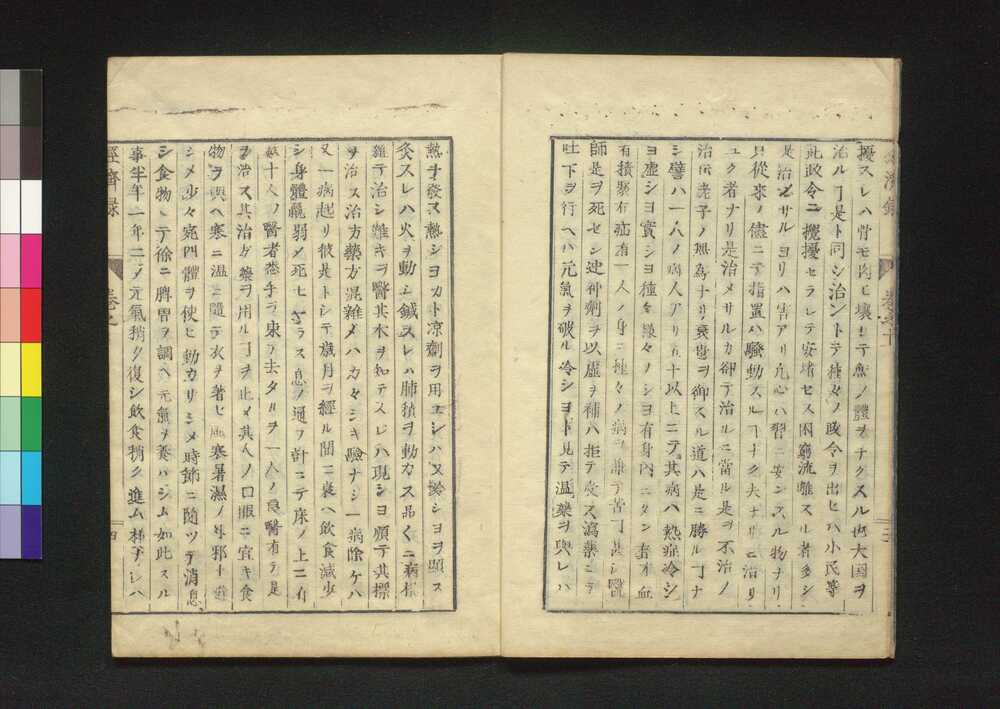 擾スレハ骨モ肉モ壞レテ魚ノ體ヲナクスル也大国ヲ
治ルヿ是ト同シ治ントテ種々ノ政令ヲ出セハ小民等
此政令ニ攪擾セラレテ安堵セス困窮流離スル者多シ
是治メサルヨリハ害アリ凡心ハ習ニ安ンスル物ナリ
只從來ノ儘ニテ指置ハ騒動スルヿナク夫ナリニ治リ
ユク者ナリ是治メサルカ却テ治ルニ當ル是ヲ不治ノ
治 老子ノ無為ナリ衰 ヲ御スル道ハ是ニ勝ルヿナ
シ譬ハ一人ノ病人アリ五十以上ニテ其病ハ熱症冷シ
ヨ虚シヨ實シヨ種々様々ノシヨ有身内ニタン 不血
有積聚有疝有一人ノ身ニ種々ノ病ヲ兼テ苦ヿ甚シ醫
師是ヲ死セシ 補劑ヲ以虚ヲ補ハ拒テ受ス瀉藥ニテ
吐下ヲ行ヘハ元氣ヲ破ル冷シヨト見テ温藥ヲ與レハ
熱ヲ發ス熱シヨカト凉劑ヲ用ユレハ又冷シヨヲ顕ス
灸スレハ火ヲ動シ鍼スレハ肺積ヲ動カス品々ニ病
雜テ治シ難キヲ醫其本ヲ知テスレハ現シヨ顧テ其標
ヲ治ス治方藥方混雜メハカ々シキ驗ナシ一病除ケハ
又一病起リ彼是トシテ歳月ヲ經ル間ニ衰ヘ飲食減少
シ身體羸弱メ死セサラス息ノ通フ計ニテ床ノ上ニ有
数十人ノ醫者悉手ヲ束テ去タルヲ一人ノ良醫有テ是
ヲ治ス其治カ藥ヲ用ルヿヲ止メ其人ノ口腹ニ宜キ食
物ヲ與ヘ寒ニ温ニ隨テ衣ヲ著セ風寒暑濕ノ外邪ヲ避
シメ少々宛四體ヲ使ヒ動カサシメ時節ニ隨ツテ消息
シ食物ニテ徐ニ脾胃ヲ調ヘ元氣ヲ養ハシム如此スル
事半年一年ニメ元氣稍ク復シ飲食稍ク進ム様子シハ
經濟録
巻之
四